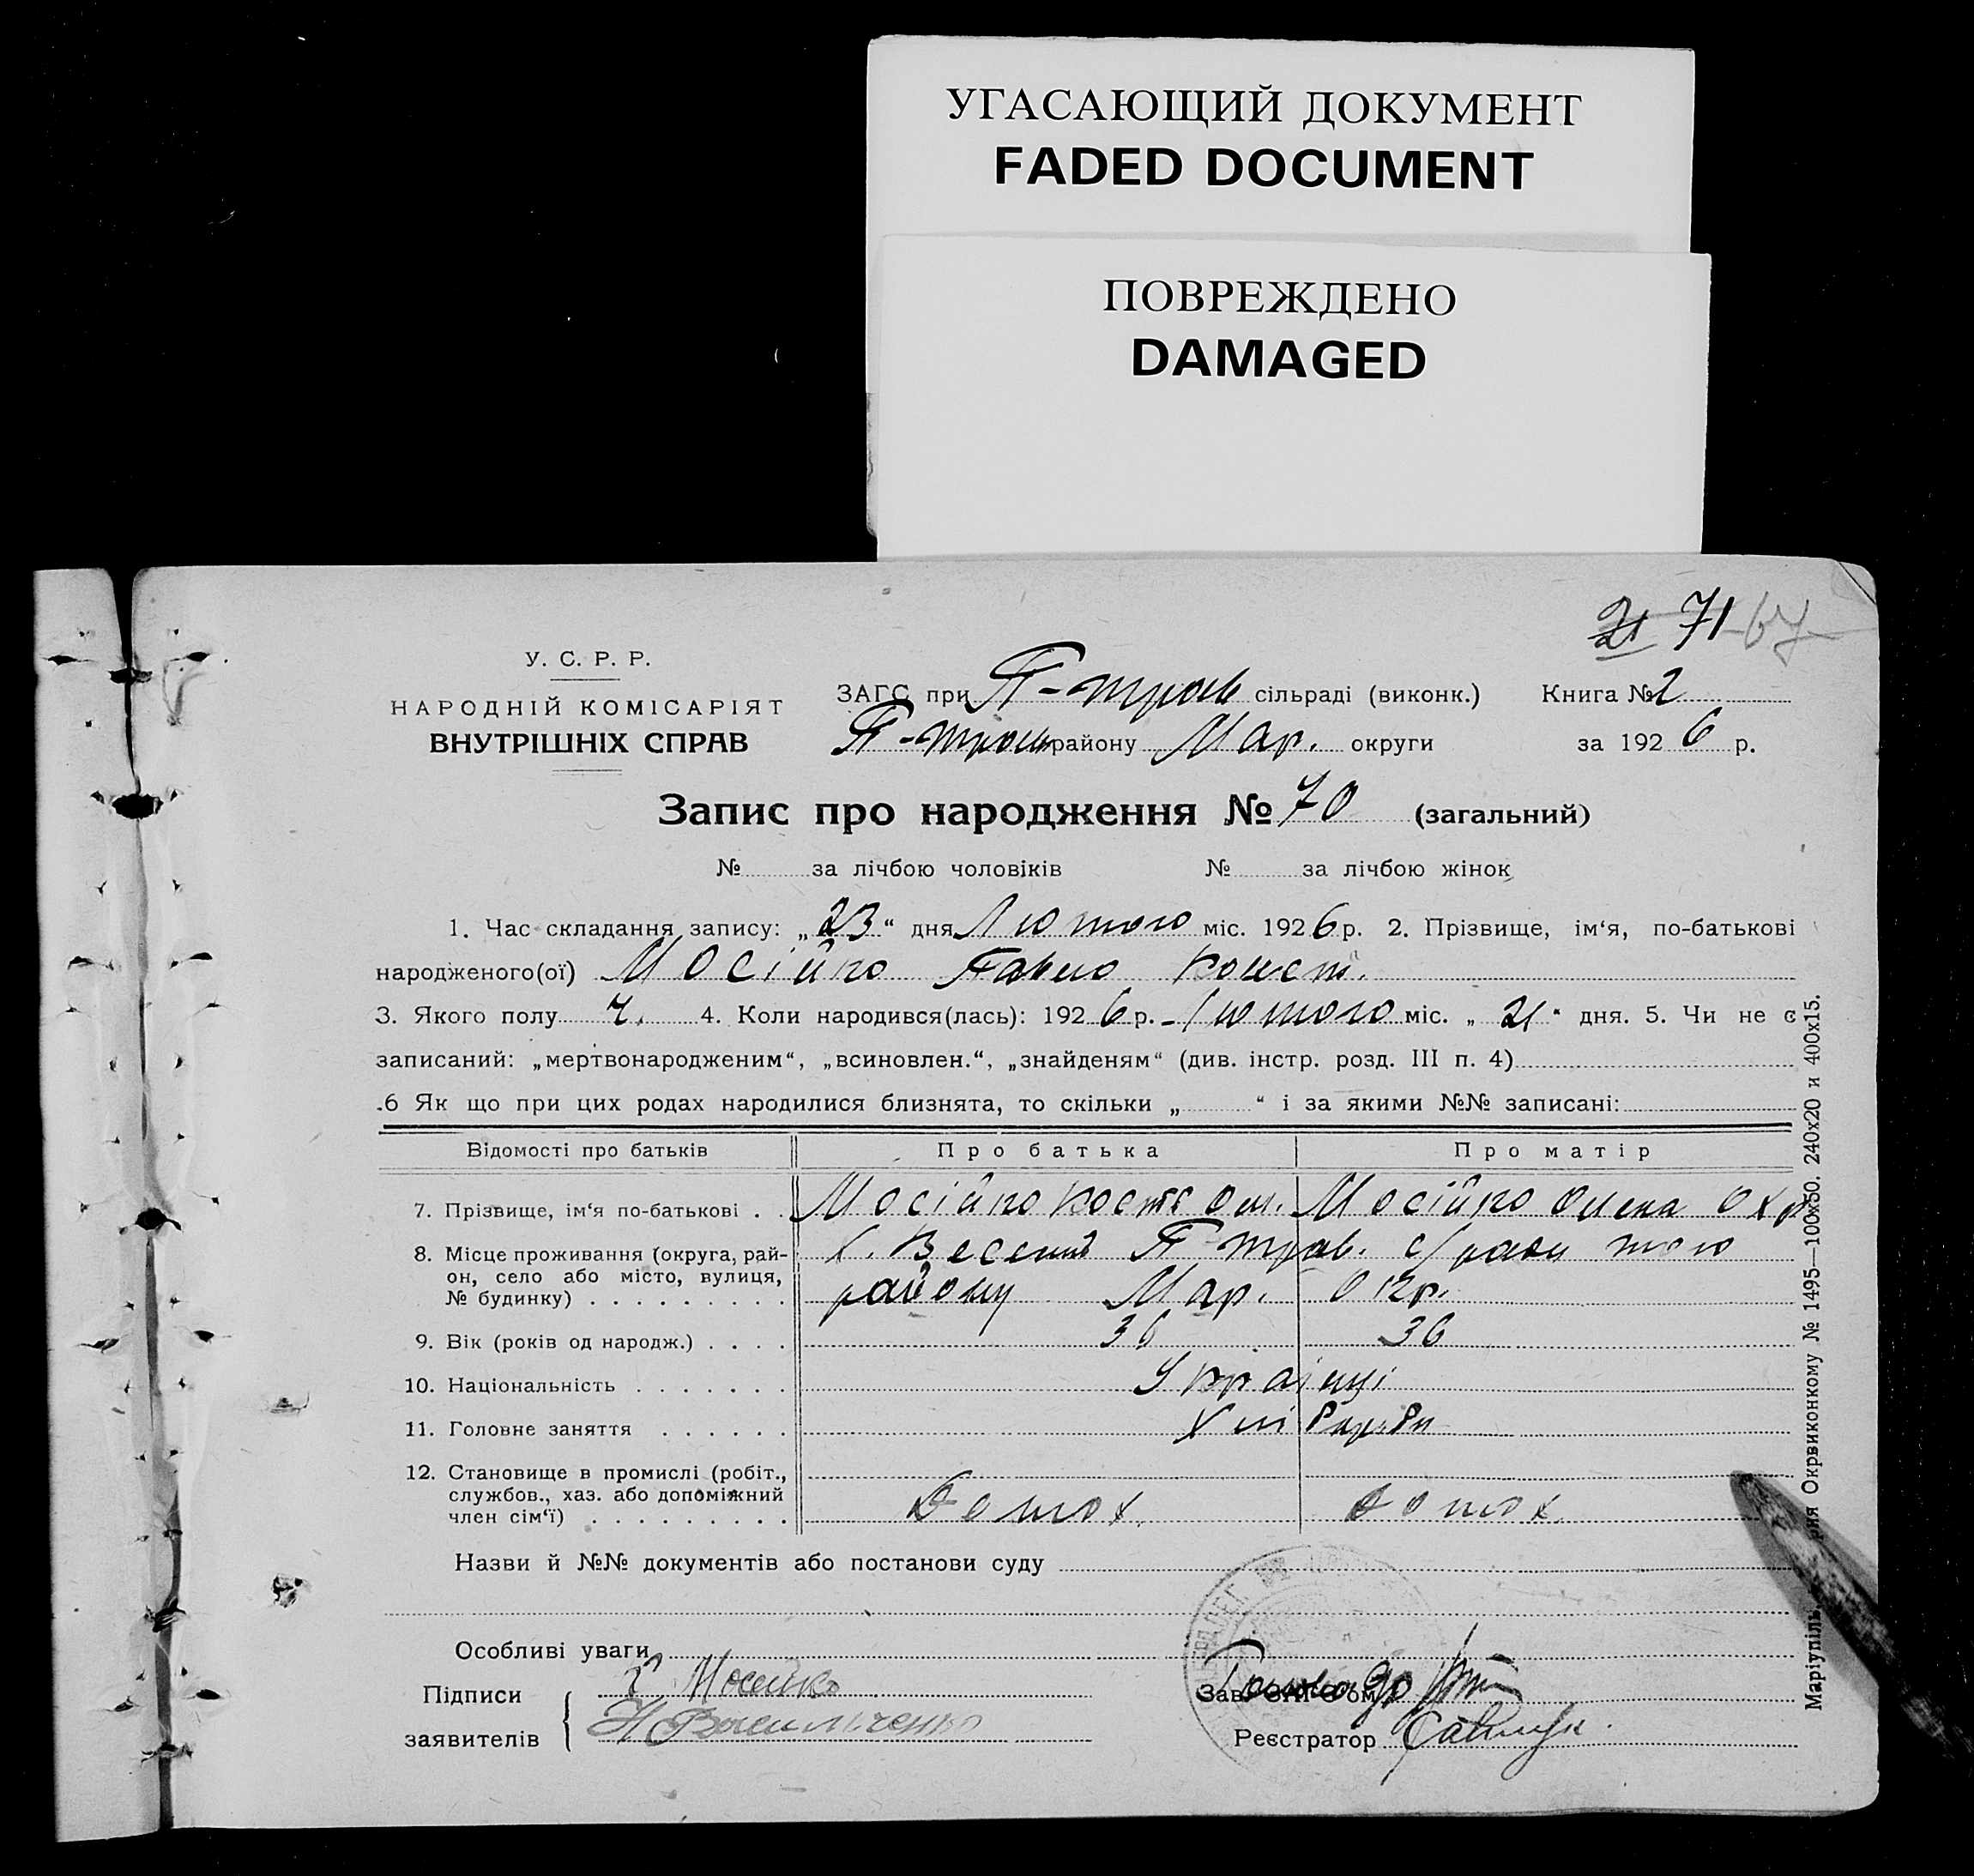 УГАСАЮЩИЙ ДОКУМЕНТ
FADED DOCUMENT
ПОВРЕЖДЕНО
DAMAGED
21 71 67
У. С. Р. Р.
НАРОДНІЙ КОМІСАРІЯТ
ВНУТРІШНІХ СПРАВ
ЗАГС при П-трав сільраді (виконк.) Книга № 2
П-трав району Мар. округи за 1926 р.
Запис про народження № 70 (загальний)
№ за лічбою чоловіків № за лічбою жінок
1. Час складання запису: „23“ дня Лютого міс. 1926 р. 2. Прізвище, ім‘я, по-батькові
народженого(ої) Мосійко Павло Конст.
3. Якого полу ч. 4. Коли народився(лась): 1926 р. Лютого міс. „21“ дня. 5. Чи не є
записаний: „мертвонародженим“, „всиновлен.“, „знайденям“ (див. інстр. розд. III п. 4)
.6 Як що при цих родах народилися близнята, то скільки „ “ і за якими №№ записані:
Відомості про батьків Про батька Про матір
7. Прізвище, ім‘я по-батькові . . Мосійко Мосійко
8. Місце проживання (округа, рай- х. Веселий П-трав. с/ради того
он, село або місто, вулиця, району Мар. Окр.
№ будинку) . . . . . . . . .
9. Вік (років од народж.) . . . . 36 36
10. Національність . . . . . . . Українці
11. Головне заняття . . . . . . Хлібороби
12. Становище в промислі (робіт.,
службов., хаз. або допоміжний
член сім‘ї) . . . . . . . . .
Назви й №№ документів або постанови суду
Особливі уваги
Підписи Мосійко
заявителів Василиченко
Зав. ЗАГС‘ом
Реєстратор
Маріупіль, рня Окрвиконкому № 1495—100х50. 240х20 и 400х15.